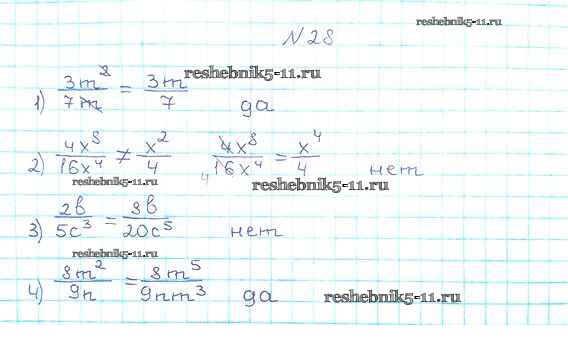 reshebnik5-11.ru
№28
reshebnik5-11.ru
1) 3m²/7m = 3m/7 да
2) 4x⁸/16x⁴ ≠ x²/4 4x⁸/16x⁴ = x⁴/4 нет
4
reshebnik5-11.ru reshebnik5-11.ru
3) 2b/5c³ = 8b/20c⁵ нет
reshebnik5-11.ru
4) 8m²/9n = 8m⁵/9nm³ да reshebnik5-11.ru